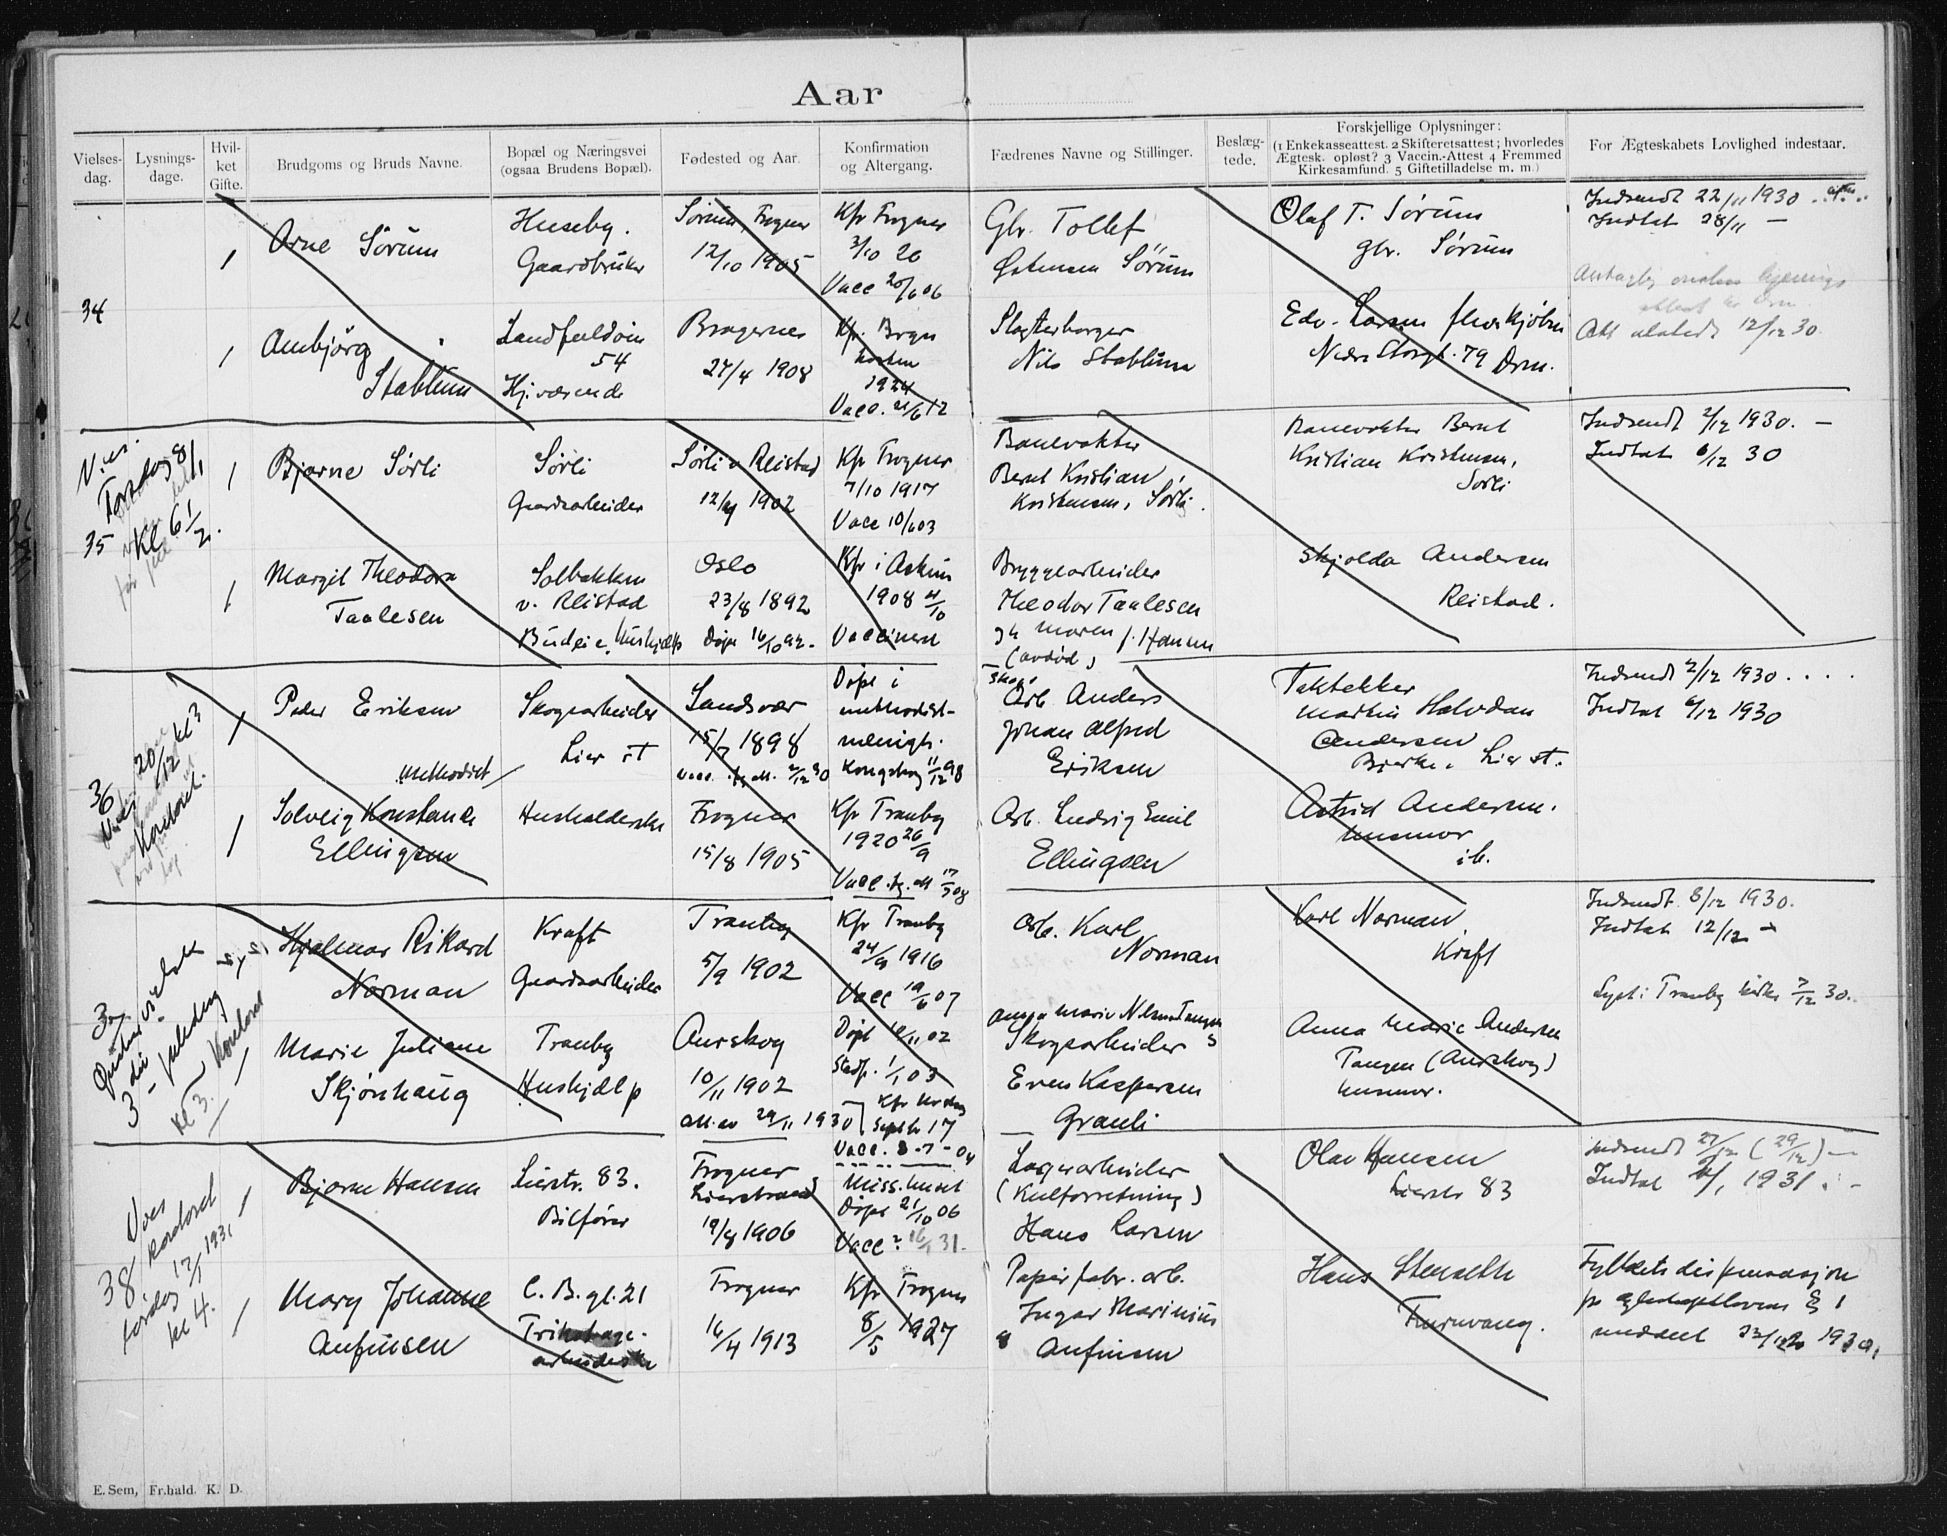 Aar
Vielses-dag.
Lysnings-dage.
Hvil-ket Gifte.
Brudgoms og Bruds Navne.
Bopæl og Næringsvei (ogsaa Brudens Bopæl).
Fødested og Aar.
Konfirmation og Altergang.
Fædrenes Navne og Stillinger.
Beslæg-tede.
Forskjellige Oplysninger:
(1 Enkekasseattest. 2 Skifteretsattest; hvorledes
Ægtesk. opløst? 3 Vaccin.-Attest 4 Fremmed
Kirkesamfund. 5 Giftetilladelse m. m.)
For Ægteskabets Lovlighed indestaar.
34
1
Arne Sørum
Huseby.
Gaardbruker
Sørum, Frogner
12/10 1905
Kfr Frogner
3/10 20
Vacc 20/6 06
Gbr. Tollef
Sørum
Olaf T. Sørum
gbr. Sørum
Indsendt 22/11 1930
Indtat 28/11 —
1
Ambjørg
Stablum
54
Hj.værende
Bragernes
27/4 1908
Kfr. Bragn
kirken
1924
Vacc. 21/6 12
Nils Stablum
Edv. Larsen
Nedre Storgt. 79 Drm.
12/12 30
35
Torsdag 8/1
kl 6 1/2
1
Bjarne Sørli
Sørli
Gaardsarbeider
Sørli v Reistad
12/4 1902
Kfr Frogner
7/10 1917
Vacc 10/6 03
Banevokter
Bernt Kristian
Kristensen, Sørli.
Banevokter Bernt
Kristian Kristensen,
Sørli
Indsendt 2/12 1930. —
Indtat 6/12 30
1
Margit Theodora
Taalesen
Solbakken
v. Reistad
Budeie, Hushjelp
Oslo
23/8 1892
Døpt 16/10 92.
Kfr i Askim
1908 4/10
Vaccinert
Bryggearbeider
Theodor Taalesen
og Maren f. Hansen
(avdød)
Skjolda Andersen
Reistad.
36
20/12 kl 3
Kontoret.
1
Peder Eriksen
Methodist
Skogsarbeider
Lier st
Landsvær
15/7 1898
Døpt i
methodist-
menigh.
Kongsberg 11/12 98
Skogs
Arb. Anders
Johan Alfred
Eriksen
Taktekker
Martin Halvdan
Andersen
Bjerke, Lier st.
Indsendt 2/12 1930 . . . .
Indtat 6/12 1930
1
Solveig Konstanse
Ellingsen
Husholderske
Frogner
15/8 1905
Kfr Tranby
1920 26/9
Arb. Ludvig Emil
Ellingsen
Astrid Andersen.
husmor
ib.
37
3 – juledag
kl 3.
Kontoret
Hjalmar Rikard
Norman
Kraft
Gaardsarbeider
Tranby
5/9 1902
Kfr Tranby
24/9 1916
Vacc 19/6 07
Arb. Karl
Norman
Karl Norman
Kraft
Indsendt 8/12 1930.
Indtat 12/12 —
Lyst i Tranby kirke 7/12 30.
Marie Juliane
Skjønhaug
Tranby
Hushjelp
Aurskog
10/11 1902
Att. av 29/11 1930
Døpt 16/11 02
Stadf. 1/1 03
Septbr 17
Vacc. 8-7-04
Anna Marie
Skogsarbeider
Even Kaspersen
Grauli
Anna Marie Andersen
Tangen (Aurskog)
husmor.
38
Vies
kontoret
17/1 1931
kl 4.
1
Bjarne Hansen
Lierstr. 83.
Bilfører
Frogner
Lierstrand
19/8 1906
Miss.huset
Døpt 21/10 06
Vacc? 16/1 31.
Lagerarbeider
(Kulforretning)
Hans Larsen
Olav Hansen
Lierstr 83
Indsendt 27/12 (29/12) —
Indtat 1931. —
1
Mary Johanne
Anfinsen
C. B. gt. 21
Trikotage-
arbeiderske
Frogner
16/4 1913
Kfr Frogner
8/5 1927
Papirfabr. arb.
Ingar Marinius
Anfinsen
Hans Stenseth
Furuvang.
Fylkets dispensasjon
fr ægteskapslovens § 1
meddelt
E. Sem, Fr.hald. K. D.